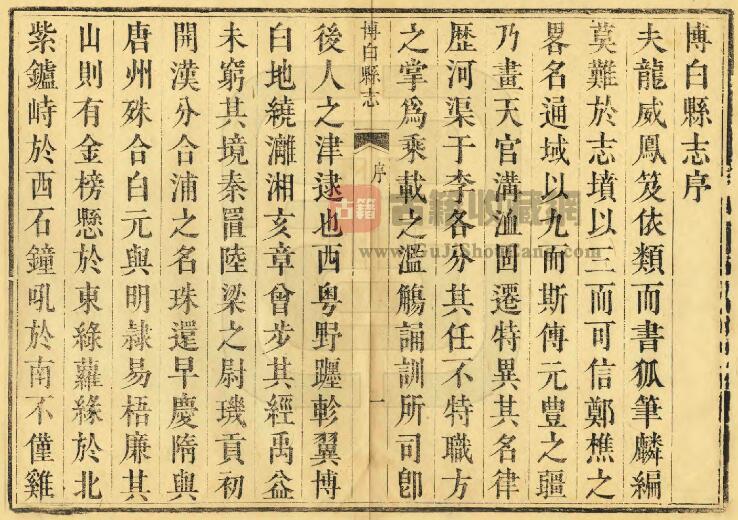 博白縣志序
夫龍威鳳笈依類而書狐筆麟編
莫難於志墳以三而可信鄭樵之
畧名通域以九而斯傳元豊之疆
乃畫天官溝洫固遷特異其名律
歷河渠于李各分其任不特職方
之掌為乘載之濫觴誦訓所司卽
博白縣志
序
一
後人之津逮也西粵野躔軫翼博
白地繞灕湘亥章曾步其經禹益
未窮其境秦置陸梁之尉璣貢初
開漢分合浦之名珠還早慶隋與
唐州殊合白元與明隷易梧廉其
山則有金榜懸於東綠蘿緣於北
紫鑪峙於西石鐘吼於南不僅雞
古籍
古籍收藏網
www.GuJiShouCang.com